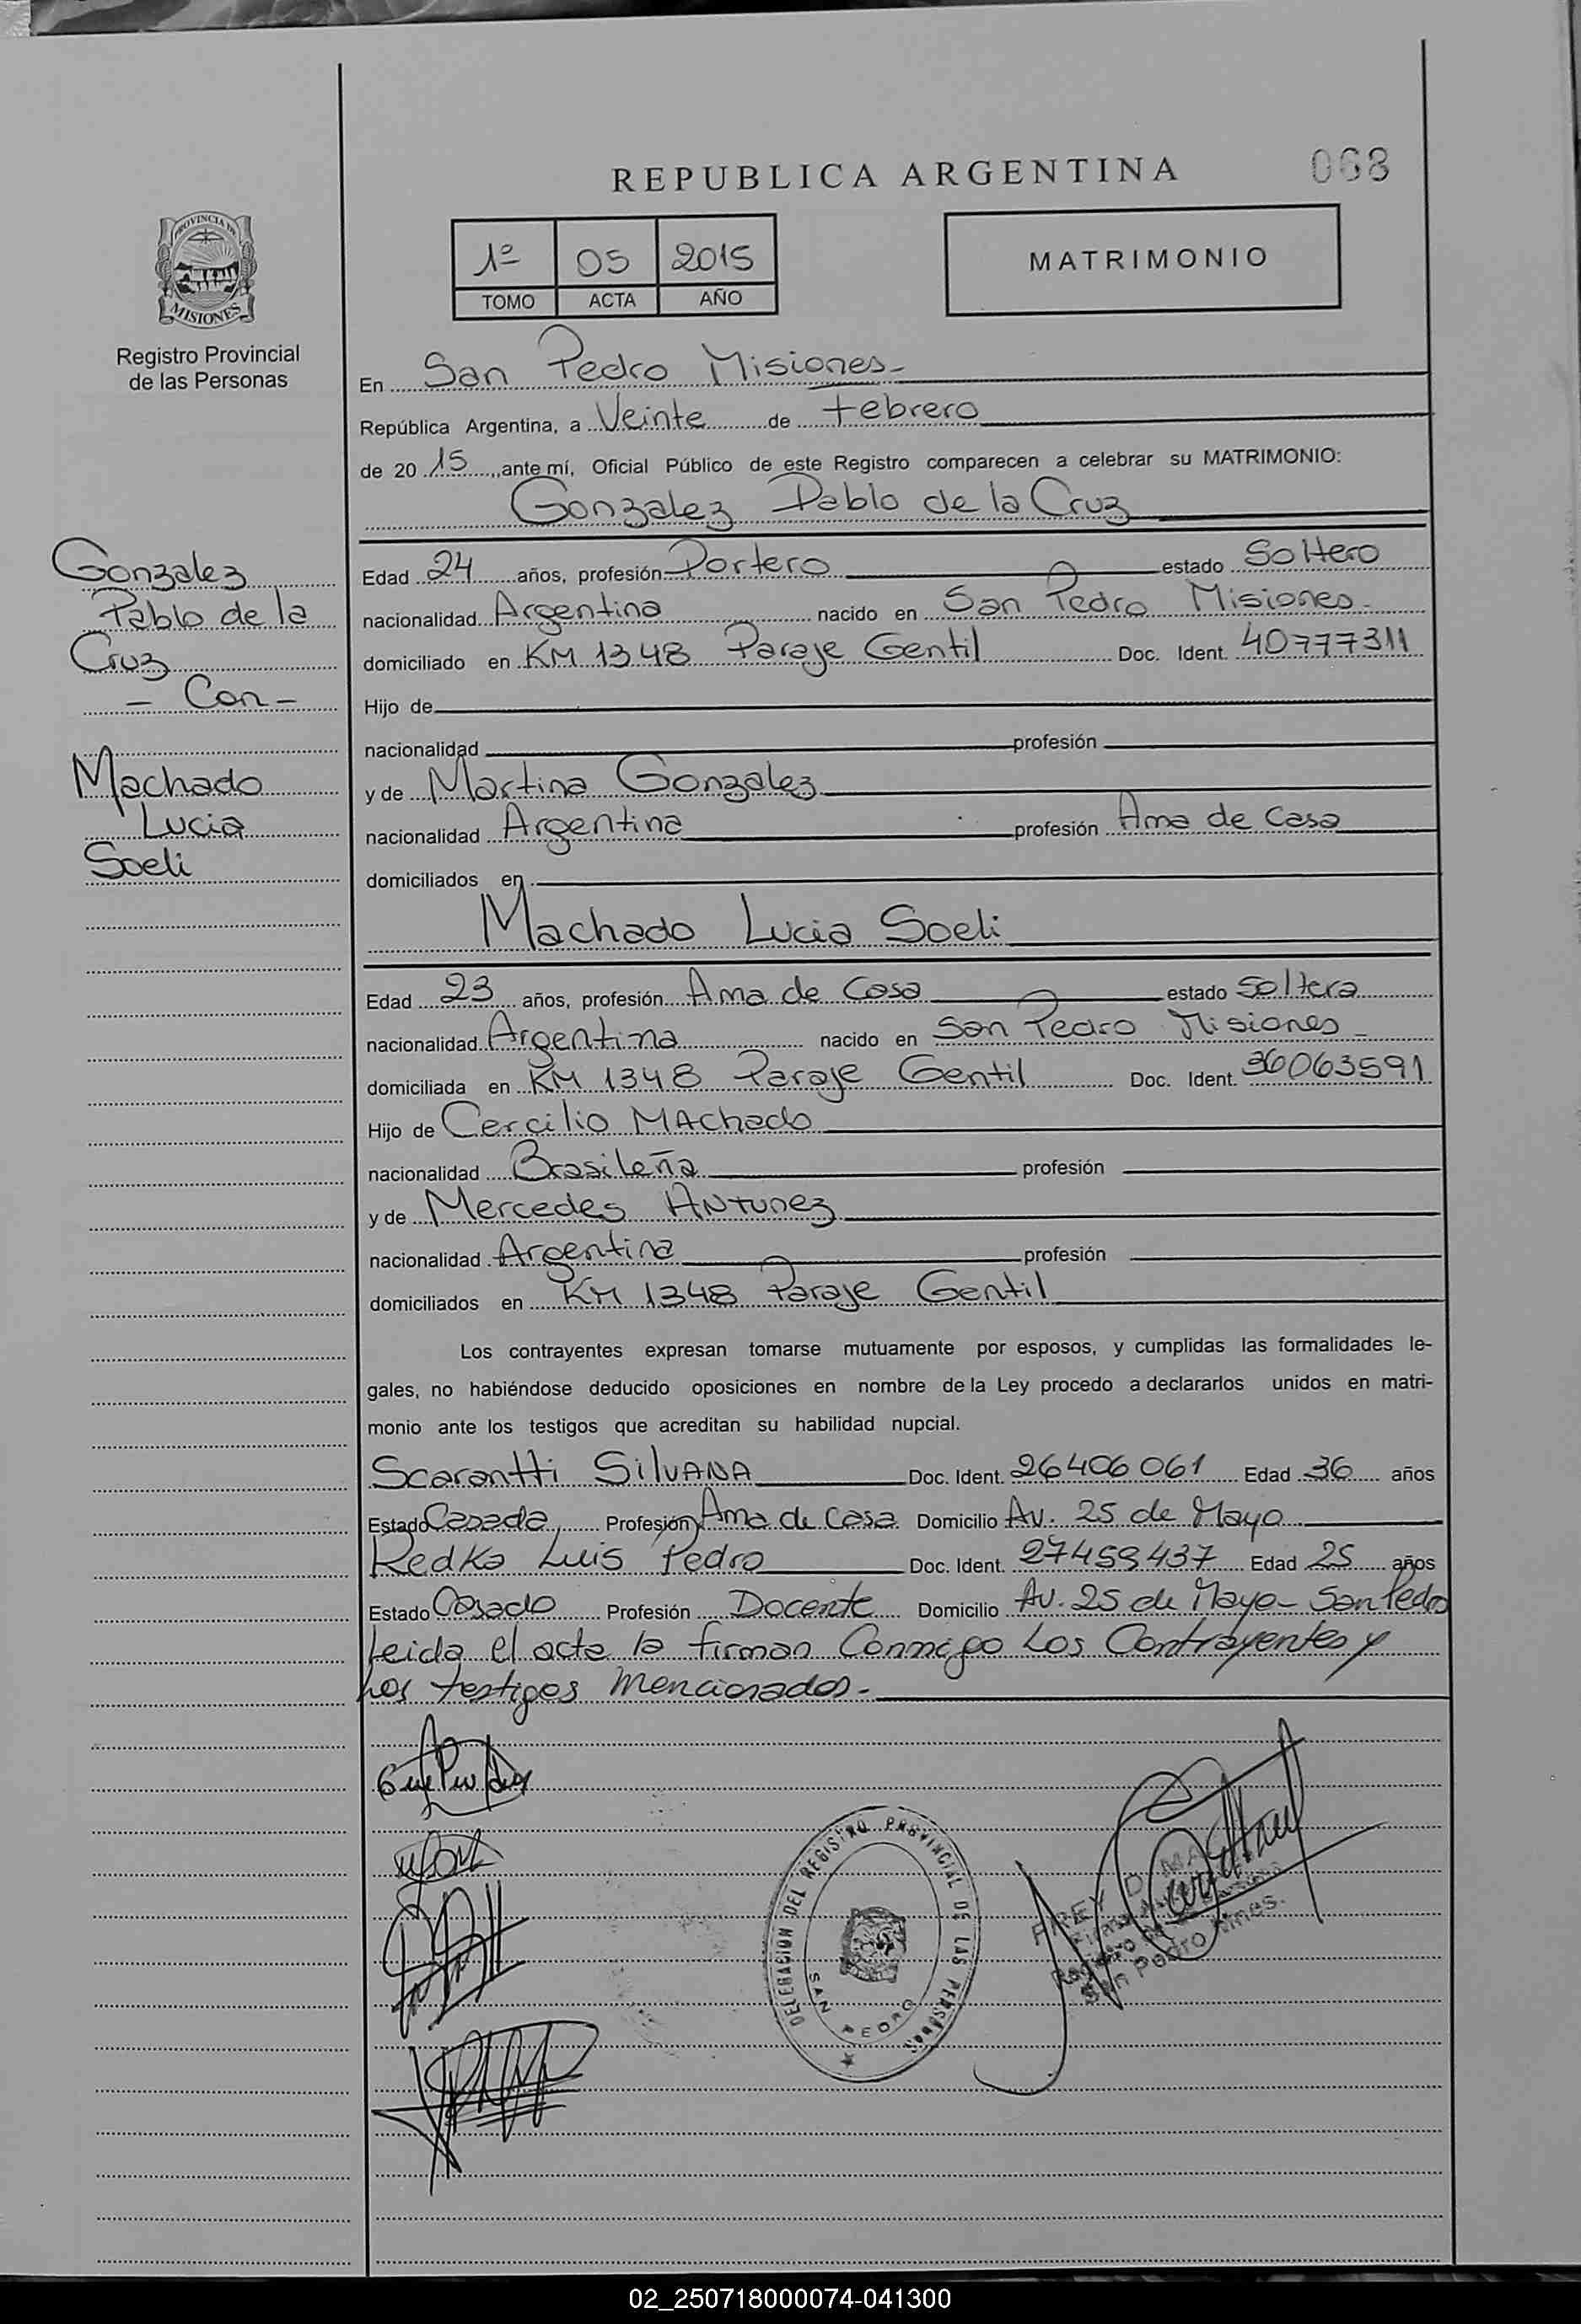 REPUBLICA ARGENTINA
068
1º 05 2015
TOMO ACTA AÑO
MATRIMONIO
PROVINCIA DE
MISIONES
Registro Provincial
de las Personas
En San Pedro Misiones-
República Argentina, a Veinte de febrero
de 20 15, ante mí, Oficial Público de este Registro comparecen a celebrar su MATRIMONIO:
Gonzalez Pablo de la Cruz
Gonzalez
Pablo de la
Cruz
- Con -
Machado
Lucia
Soeli
Edad 24 años, profesión Portero estado Soltero
nacionalidad Argentina nacido en San Pedro Misiones-
domiciliado en KM 1348 Paraje Gentil Doc. Ident. 40777311
Hijo de
nacionalidad profesión
y de Martina Gonzalez
nacionalidad Argentina profesión Ama de Casa
domiciliados en
Machado Lucia Soeli
Edad 23 años, profesión Ama de Casa estado Soltera
nacionalidad Argentina nacido en San Pedro Misiones-
domiciliada en KM 1348 Paraje Gentil Doc. Ident. 36063591
Hijo de Cercilio MAchado
nacionalidad Brasileña profesión
y de Mercedes ANtunez
nacionalidad Argentina profesión
domiciliados en KM 1348 Paraje Gentil
Los contrayentes expresan tomarse mutuamente por esposos, y cumplidas las formalidades le-
gales, no habiéndose deducido oposiciones en nombre de la Ley procedo a declararlos unidos en matri-
monio ante los testigos que acreditan su habilidad nupcial.
Scarantti SilvANA Doc. Ident. 26406061 Edad 36 años
Estado Casada, Profesión Ama de Casa Domicilio Av. 25 de Mayo
Redko Luis Pedro Doc. Ident. 27459437 Edad 25 años
Estado Casado Profesión Docente Domicilio Av. 25 de Mayo- San Pedro
Leida el acta la firman Conmigo Los Contrayentes y
Los testigos Mencionados-
DELEGACION DEL REGISTRO PROVINCIAL DE LAS PERSONAS
SAN PEDRO
San Pedro Mnes.
02_250718000074-041300